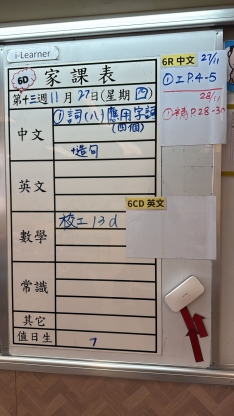 i-Learner
6D 家課表
第十三週 11月27日(星期四)
中文 ①詞(八)應用字詞
(四個)
+造句
英文
數學 校工13d
常識
其它
值日生 7
6R 中文 27/11
①工P.4-5
28/11
①補P.28-30
6CD 英文